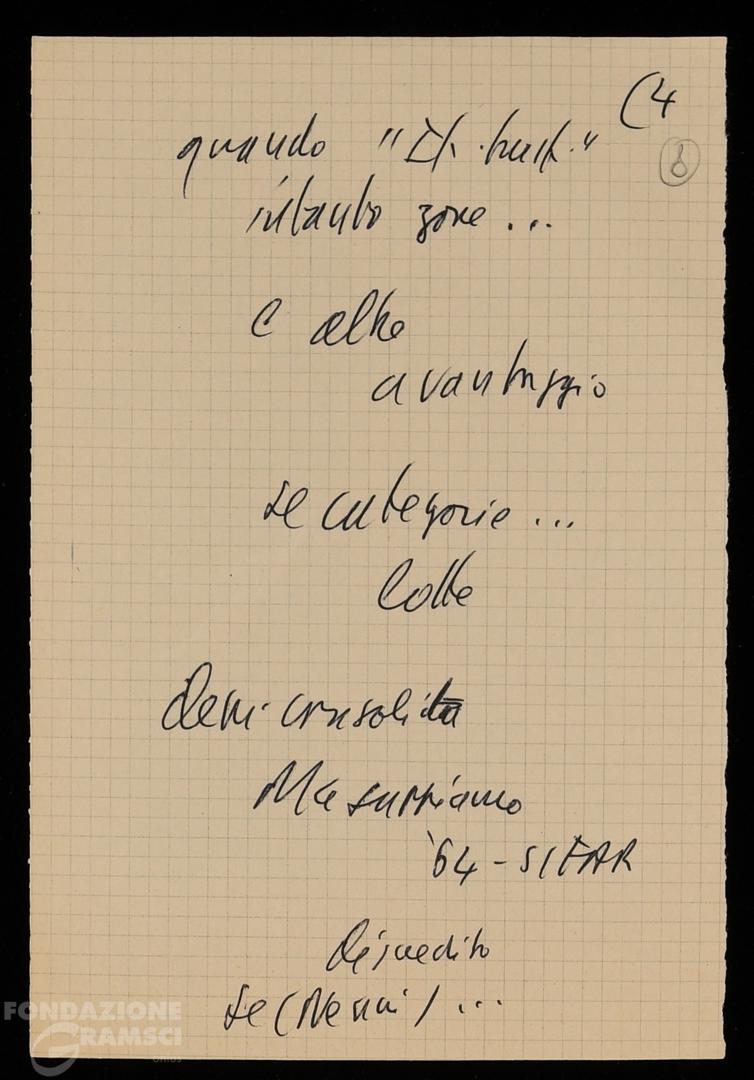 (4
6
quando "
intanto zone ...
e altre
avantaggio
se categorie ...
lotte
Dem. consolidata
Ma sappiamo
'64 - SIFAR
discredito
se (Nenni) ...
FONDAZIONE
GRAMSCI
onlus